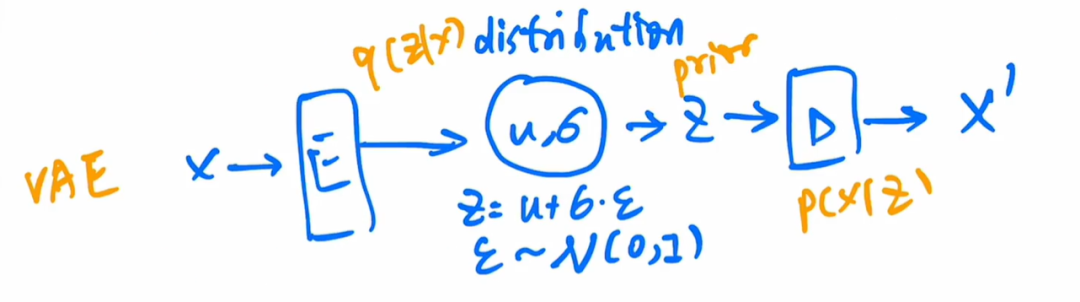 q(z|x) distribution
prior
VAE x → E → u,σ → z → D → x'
z = u + σ · ε
ε ~ N(0,I)
p(x|z)